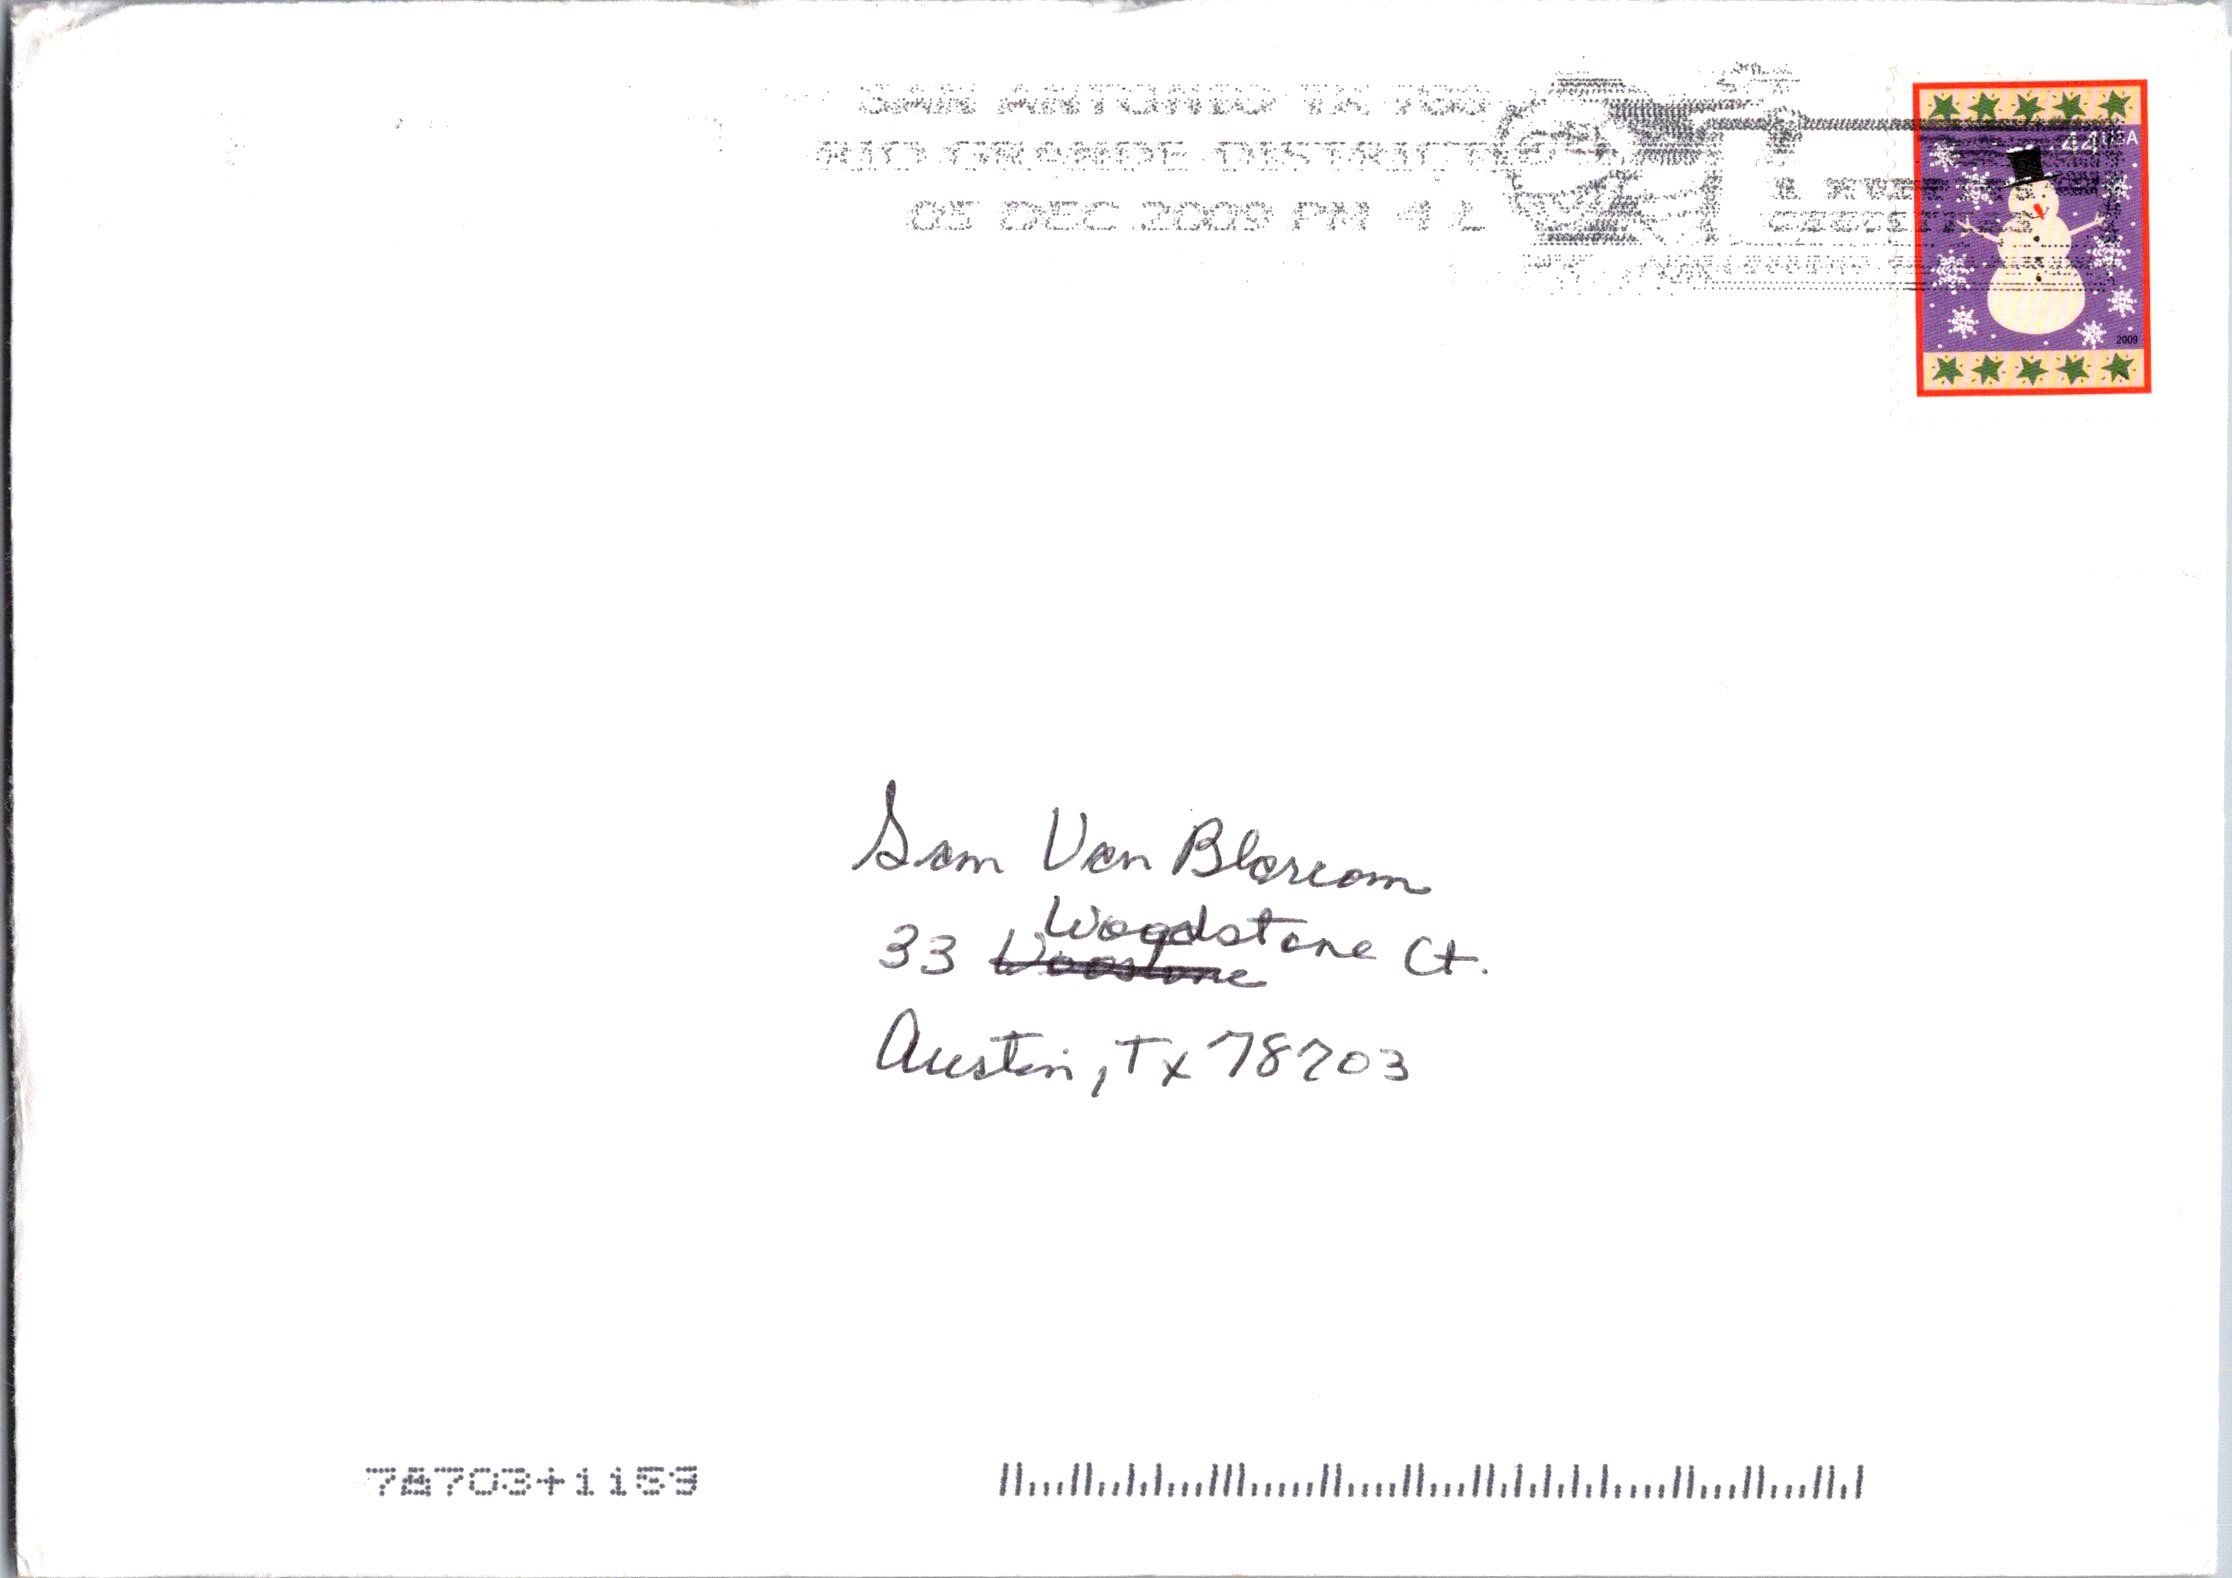 SAN ANTONIO TX 780
RIO GRANDE DISTRICT
05 DEC 2009 PM 4 L
44 USA
2009
Sam Van Blarcom
Woodstone Ct.
33 Woostone
Austin, Tx 78703
78703+1159